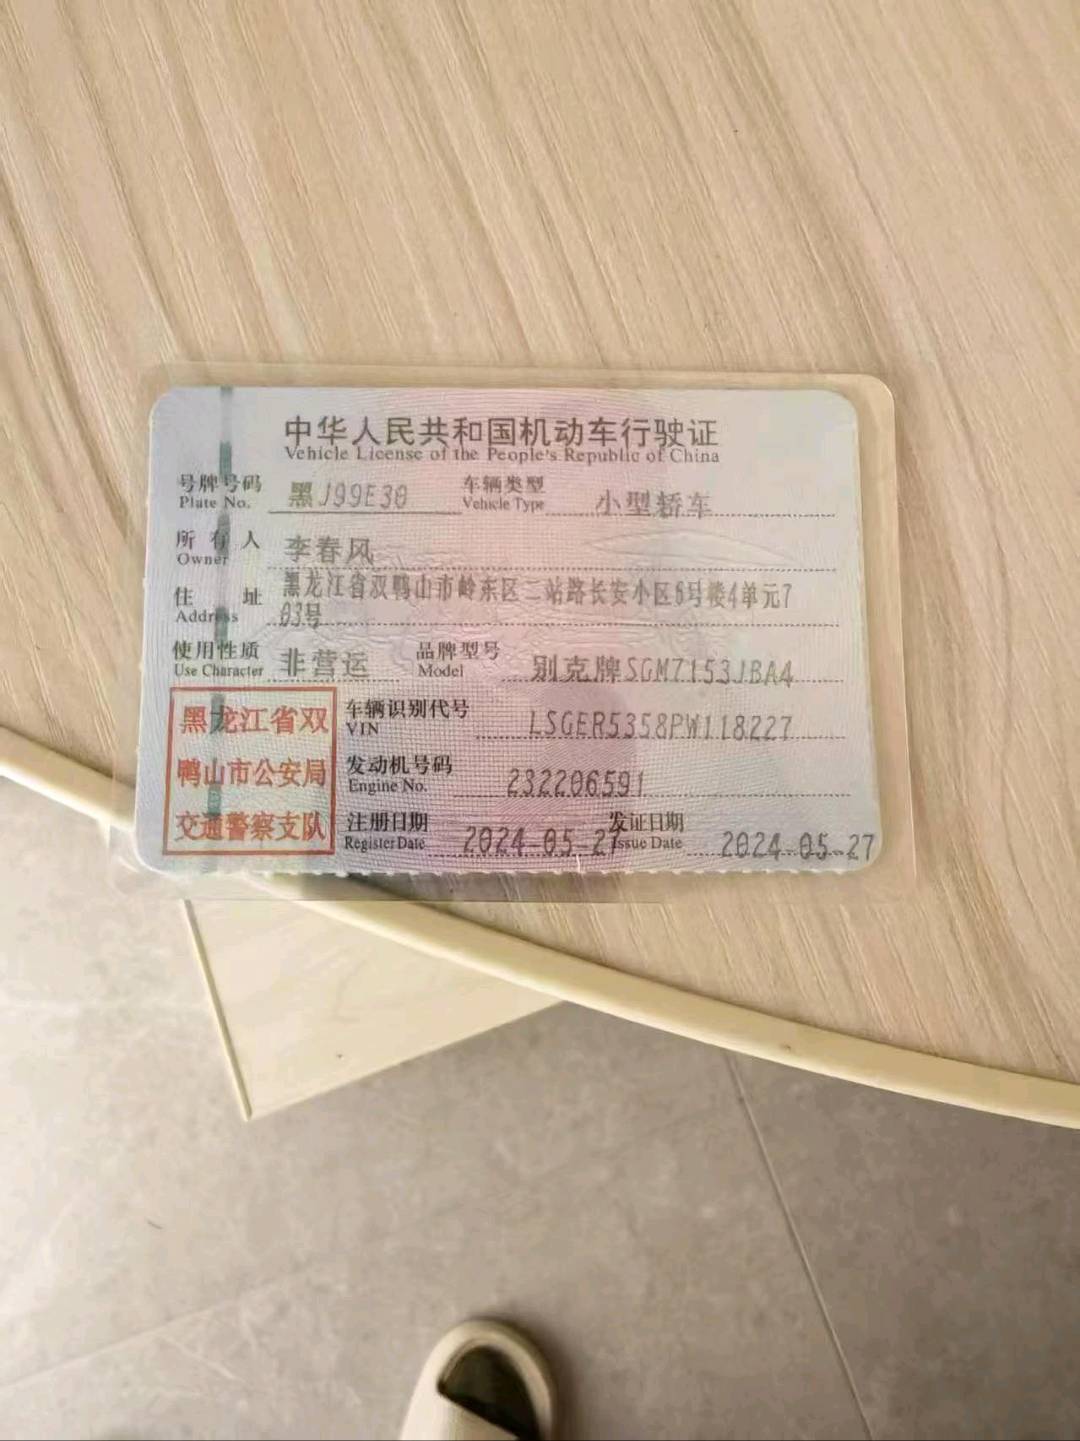 中华人民共和国机动车行驶证
Vehicle License of the People's Republic of China
号牌号码 黑J99E30 车辆类型 小型轿车
Plate No. Vehicle Type
所有人 李春风
Owner
住址 黑龙江省双鸭山市岭东区二站路长安小区6号楼4单元7
Address 03号
使用性质 非营运 品牌型号 别克牌SGM7153JBA4
Use Character Model
黑龙江省双 车辆识别代号 LSGER5358PW118227
VIN
鸭山市公安局 发动机号码 232206591
Engine No.
交通警察支队 注册日期 2024-05-27 发证日期 2024-05-27
Register Date Issue Date